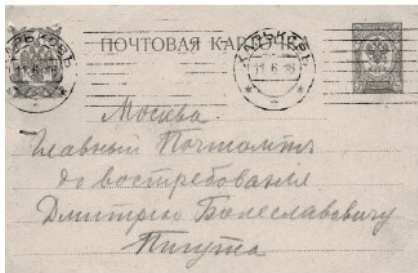 ПОЧТОВАЯ КАРТОЧКА
ХАРЬКОВЪ
11.6.16
ХАРЬКОВЪ
11.6.16
Москва
Главный Почтамтъ
до востребования
Дмитрію Болеславовичу
Пигута